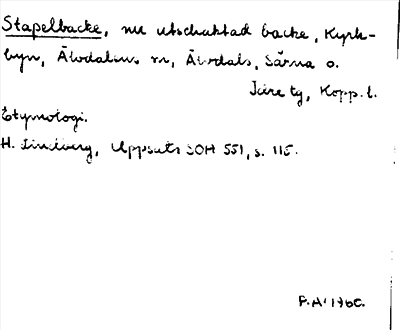 Stapelbacke, nu utschaktad backe, Kyrk-
byn, Älvdalens sn, Älvdals, Särna o.
Idre tg, Kopp. l.
Etymologi.
H. Lindberg, Uppsats SOH 551, s. 115.
F.H. 1960.